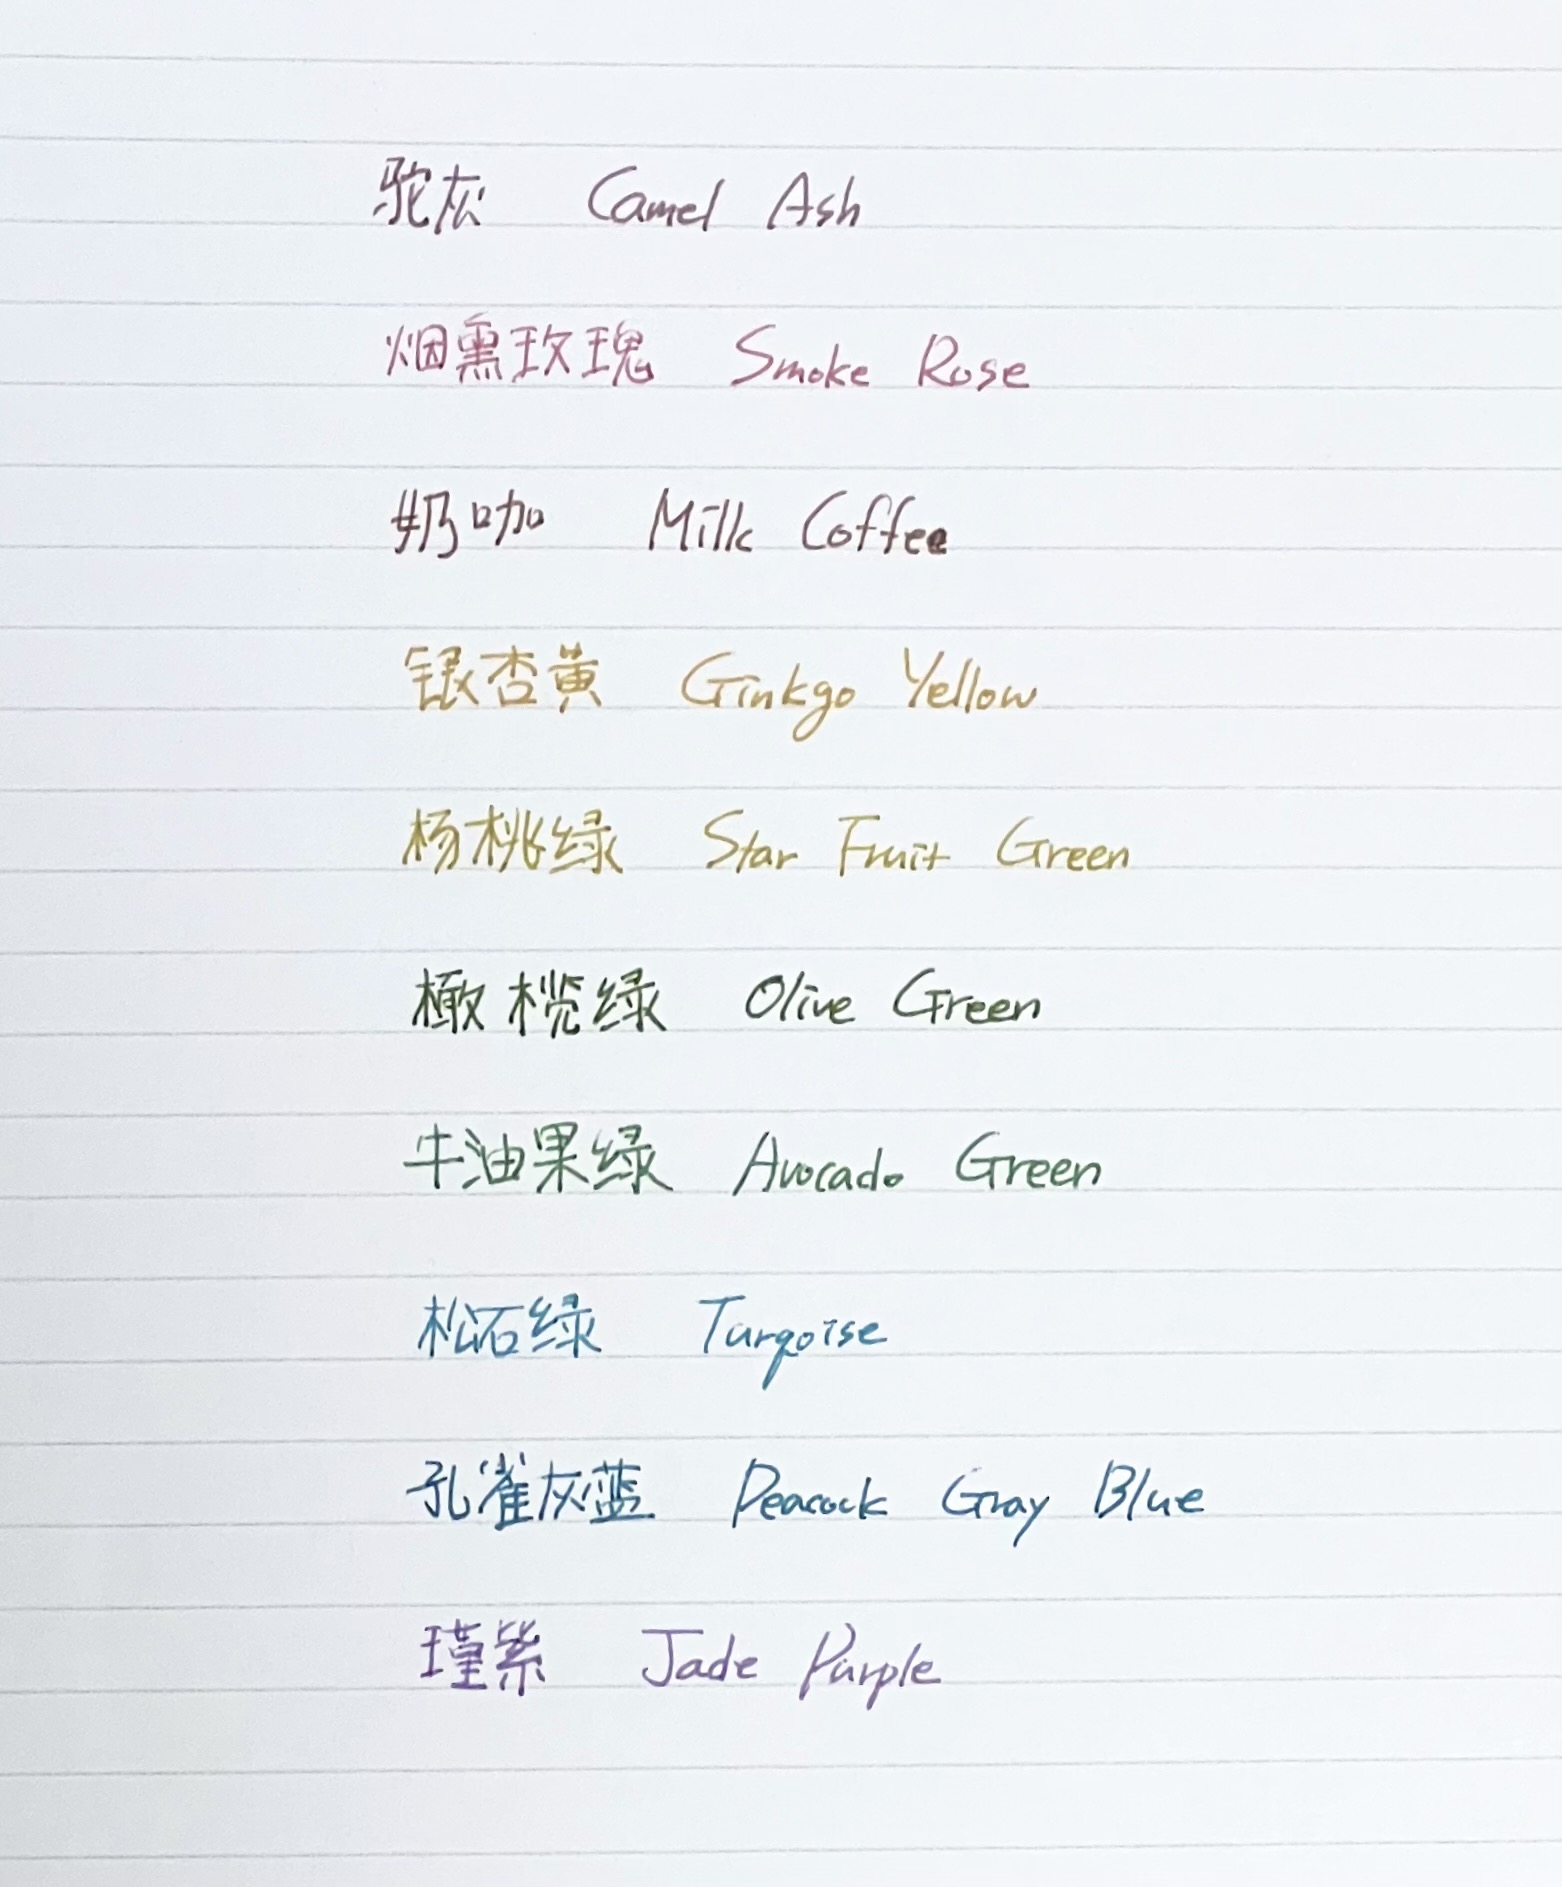 驼灰 Camel Ash
烟熏玫瑰 Smoke Rose
奶咖 Milk Coffee
银杏黄 Ginkgo Yellow
杨桃绿 Star Fruit Green
橄榄绿 Olive Green
牛油果绿 Avocado Green
松石绿 Turqoise
孔雀灰蓝 Peacock Gray Blue
瑾紫 Jade Purple